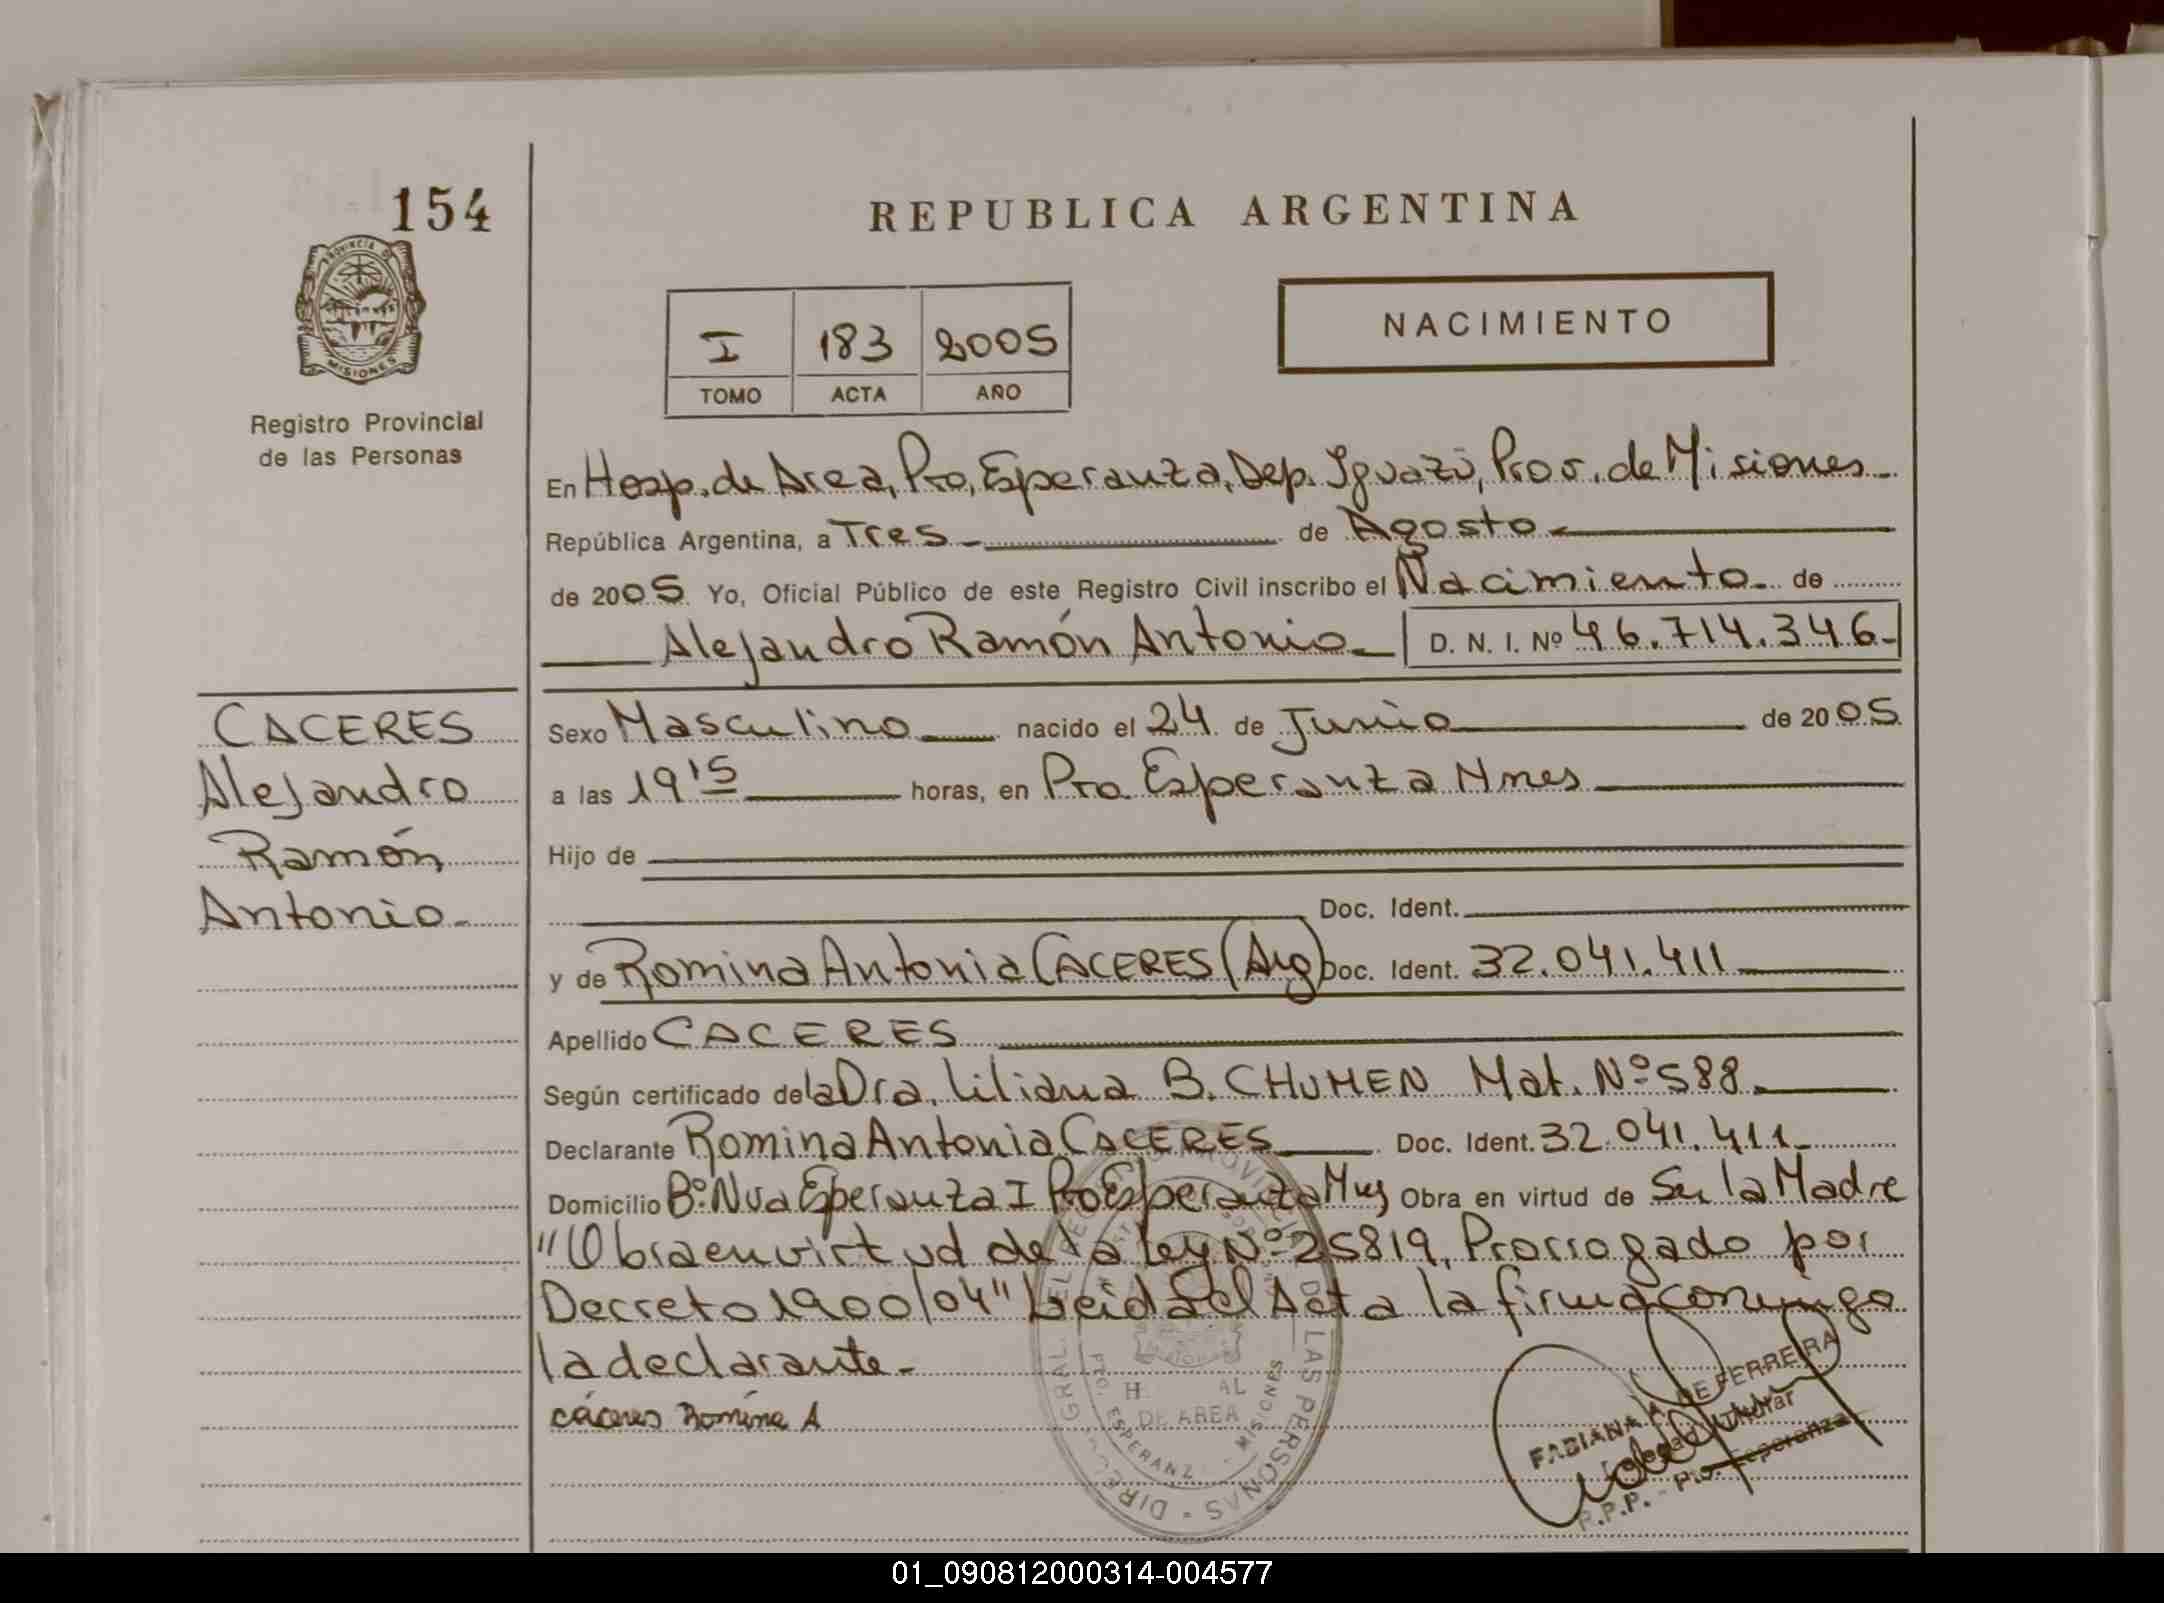 154
PROVINCIA DE
MISIONES
Registro Provincial
de las Personas
REPUBLICA ARGENTINA
I 183 2005
TOMO ACTA AÑO
NACIMIENTO
En Hosp. de Area, Pto, Esperanza, Dep. Iguazú, Prov. de Misiones
República Argentina, a Tres de Agosto
de 2005 Yo, Oficial Público de este Registro Civil inscribo el Nacimiento de
Alejandro Ramón Antonio D. N. I. Nº 46.714.346-
CACERES
Alejandro
Ramón
Antonio-
Sexo Masculino nacido el 24 de Junio de 2005
a las 19 15 horas, en Pto. Esperanza Mnes
Hijo de
Doc. Ident.
y de Romina Antonia CACERES (Arg) Doc. Ident. 32.041.411
Apellido CACERES
Según certificado de la Dra. Liliana B. CHUMEN Mat. Nº 588
Declarante Romina Antonia CACERES Doc. Ident. 32.041.411-
Domicilio Bº Nva Esperanza I Pto Esperanza Mnes Obra en virtud de Ser la Madre
"Obra en virtud de la Ley Nº 25819, Prorrogado por
Decreto 1900/04" Leida el Acta la firma conmigo
la declarante-
cáceres Romina A
H AL
DE AREA
MISIONES
DE LAS PERSONAS
FABIANA A. DE FERREIRA
Titular
R.P.P. - Pto. Esperanza
01_090812000314-004577